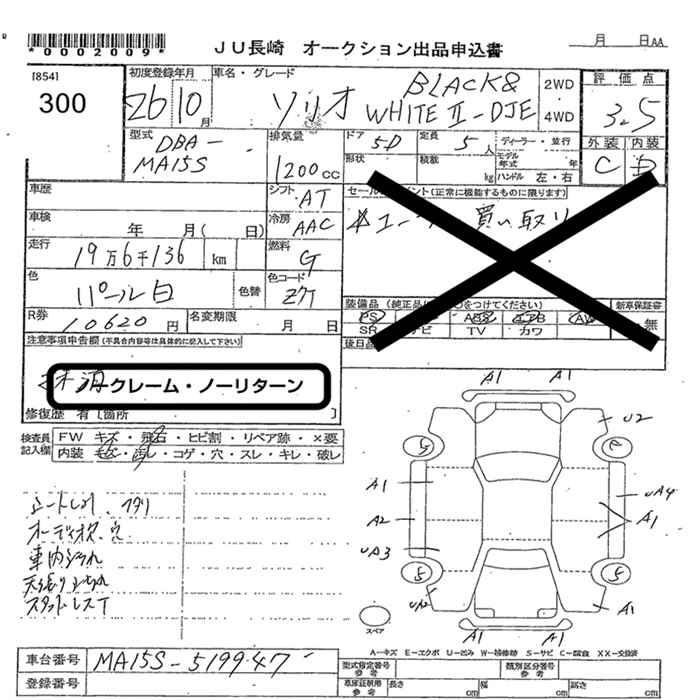 *0002009*
JU長崎 オークション出品申込書
月 日AA
[854]
300
初度登録年月
26 10月
車名・グレード
ソリオ
BLACK&
WHITE II-DJE
2WD
4WD
評価点
3.5
外装 内装
C D
型式
DBA-
MA15S
排気量
1200cc
ドア
5D
定員
5人
ディーラー・並行
形状
積載
kg
モデル年式
年
ハンドル 左・右
車歴
シフト
AT
セールスポイント(正常に機能するものに限ります)
ユーザー買い取り
車検
年 月( 日)
冷房
AAC
走行
19万6千136 km
燃料
G
色
パール白
色替
色コード
ZKT
装備品(純正品に○をつけてください)
新車保証書
PS
ABS
AW
SR ナビ TV カワ
無
R券
10620円
名変期限
月 日
後日品
注意事項申告欄(不具合内容等は具体的に記入して下さい)
抹消
クレーム・ノーリターン
修復歴 有〔箇所 〕
検査員記入欄
FW キズ・飛石・ヒビ割・リペア跡・×要
内装 モゲ・汚レ・コゲ・穴・スレ・キレ・破レ
シートしみ
オーディオ欠 穴
車内汚れ
天張り汚れ
スタッドレスT
A1
A1
U2
A1
A2
UA3
UA4
A1
5
5
A1
A1
スペア
A-キズ E-エクボ U-凹み W-補修跡 S-サビ C-腐食 XX-交換済
車台番号
MA15S-519947
登録番号
型式指定番号
参考
類別区分番号
参考
車庫証明用
参考
長さ
cm
幅
cm
高さ
cm